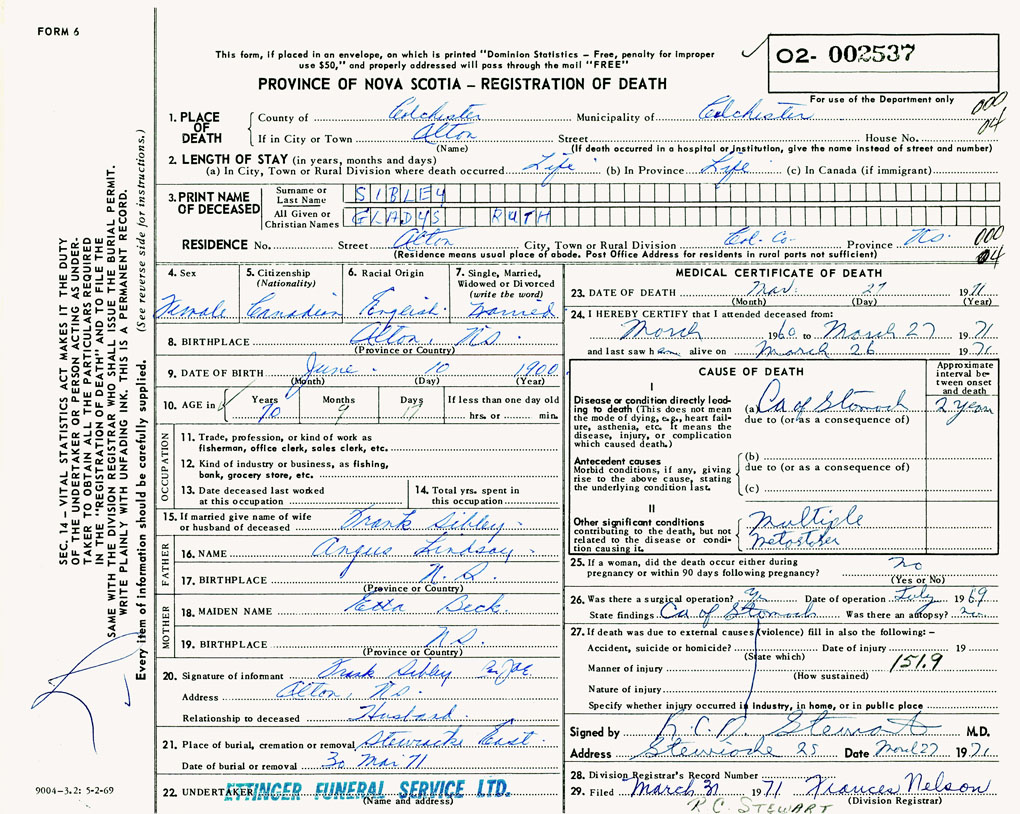 FORM 6
This form, if placed in an envelope, on which is printed "Dominion Statistics – Free, penalty for improper
use $50," and properly addressed will pass through the mail "FREE"
O2- 002537
PROVINCE OF NOVA SCOTIA – REGISTRATION OF DEATH
For use of the Department only
000
04
1. PLACE OF DEATH County of Colchester Municipality of Colchester
If in City or Town Alton Street House No.
(Name) (If death occurred in a hospital or institution, give the name instead of street and number)
2. LENGTH OF STAY (in years, months and days)
(a) In City, Town or Rural Division where death occurred Life (b) In Province Life (c) In Canada (if immigrant)
3. PRINT NAME OF DECEASED Surname or Last Name SIBLEY
All Given or Christian Names GLADYS RUTH
RESIDENCE No. Street Alton City, Town or Rural Division Col. Co. Province Ns. 000
(Residence means usual place of abode. Post Office Address for residents in rural parts not sufficient) 04
4. Sex Female
5. Citizenship (Nationality) Canadian
6. Racial Origin English
7. Single, Married, Widowed or Divorced (write the word) Married
8. BIRTHPLACE Alton, Ns.
(Province or Country)
9. DATE OF BIRTH June 10 1900
(Month) (Day) (Year)
10. AGE in Years 70 Months 9 Days 17 If less than one day old hrs. or min.
OCCUPATION
11. Trade, profession, or kind of work as
fisherman, office clerk, sales clerk, etc.
12. Kind of industry or business, as fishing,
bank, grocery store, etc.
13. Date deceased last worked
at this occupation
14. Total yrs. spent in
this occupation
15. If married give name of wife
or husband of deceased Frank Sibley
FATHER
16. NAME Angus Lindsay
17. BIRTHPLACE N.S.
(Province or Country)
MOTHER
18. MAIDEN NAME Etta Beck.
19. BIRTHPLACE NS.
(Province or Country)
20. Signature of informant Frank Sibley
Address Alton, Ns.
Relationship to deceased Husband
21. Place of burial, cremation or removal Stewiacke East
Date of burial or removal 30 Mar 71
22. UNDERTAKER ETTINGER FUNERAL SERVICE LTD.
(Name and address)
MEDICAL CERTIFICATE OF DEATH
23. DATE OF DEATH Mar. 27 1971
(Month) (Day) (Year)
24. I HEREBY CERTIFY that I attended deceased from:
March 1960 to March 27 1971
and last saw her alive on March 26 1971
CAUSE OF DEATH
Approximate interval between onset and death
I
Disease or condition directly leading to death (This does not mean the mode of dying, e.g., heart failure, asthenia, etc. It means the disease, injury, or complication which caused death.)
(a) Ca of Stomach 2 years
due to (or as a consequence of)
Antecedent causes
Morbid conditions, if any, giving rise to the above cause, stating the underlying condition last.
(b)
due to (or as a consequence of)
(c)
II
Other significant conditions contributing to the death, but not related to the disease or condition causing it.
Multiple
Metastases
25. If a woman, did the death occur either during
pregnancy or within 90 days following pregnancy? no
(Yes or No)
26. Was there a surgical operation? Yes Date of operation July 1969
State findings Ca of Stomach Was there an autopsy? no
27. If death was due to external causes (violence) fill in also the following: –
Accident, suicide or homicide? Date of injury 19
(State which)
Manner of injury 151.9
(How sustained)
Nature of injury
Specify whether injury occurred in industry, in home, or in public place
Signed by R.C.D. Stewart M.D.
Address Stewiacke NS Date March 27 1971
28. Division Registrar's Record Number
29. Filed March 31 1971 Frances Nelson
(Division Registrar)
R.C. STEWART
SEC. 14 – VITAL STATISTICS ACT MAKES IT THE DUTY
OF THE UNDERTAKER OR PERSON ACTING AS UNDER-
TAKER TO OBTAIN ALL THE PARTICULARS REQUIRED
IN THE "REGISTRATION OF DEATH" AND TO FILE THE
SAME WITH THE DIVISION REGISTRAR WHO SHALL ISSUE THE BURIAL PERMIT.
WRITE PLAINLY WITH UNFADING INK. THIS IS A PERMANENT RECORD.
Every item of information should be carefully supplied. (See reverse side for instructions.)
9004-3.2: 5-2-69